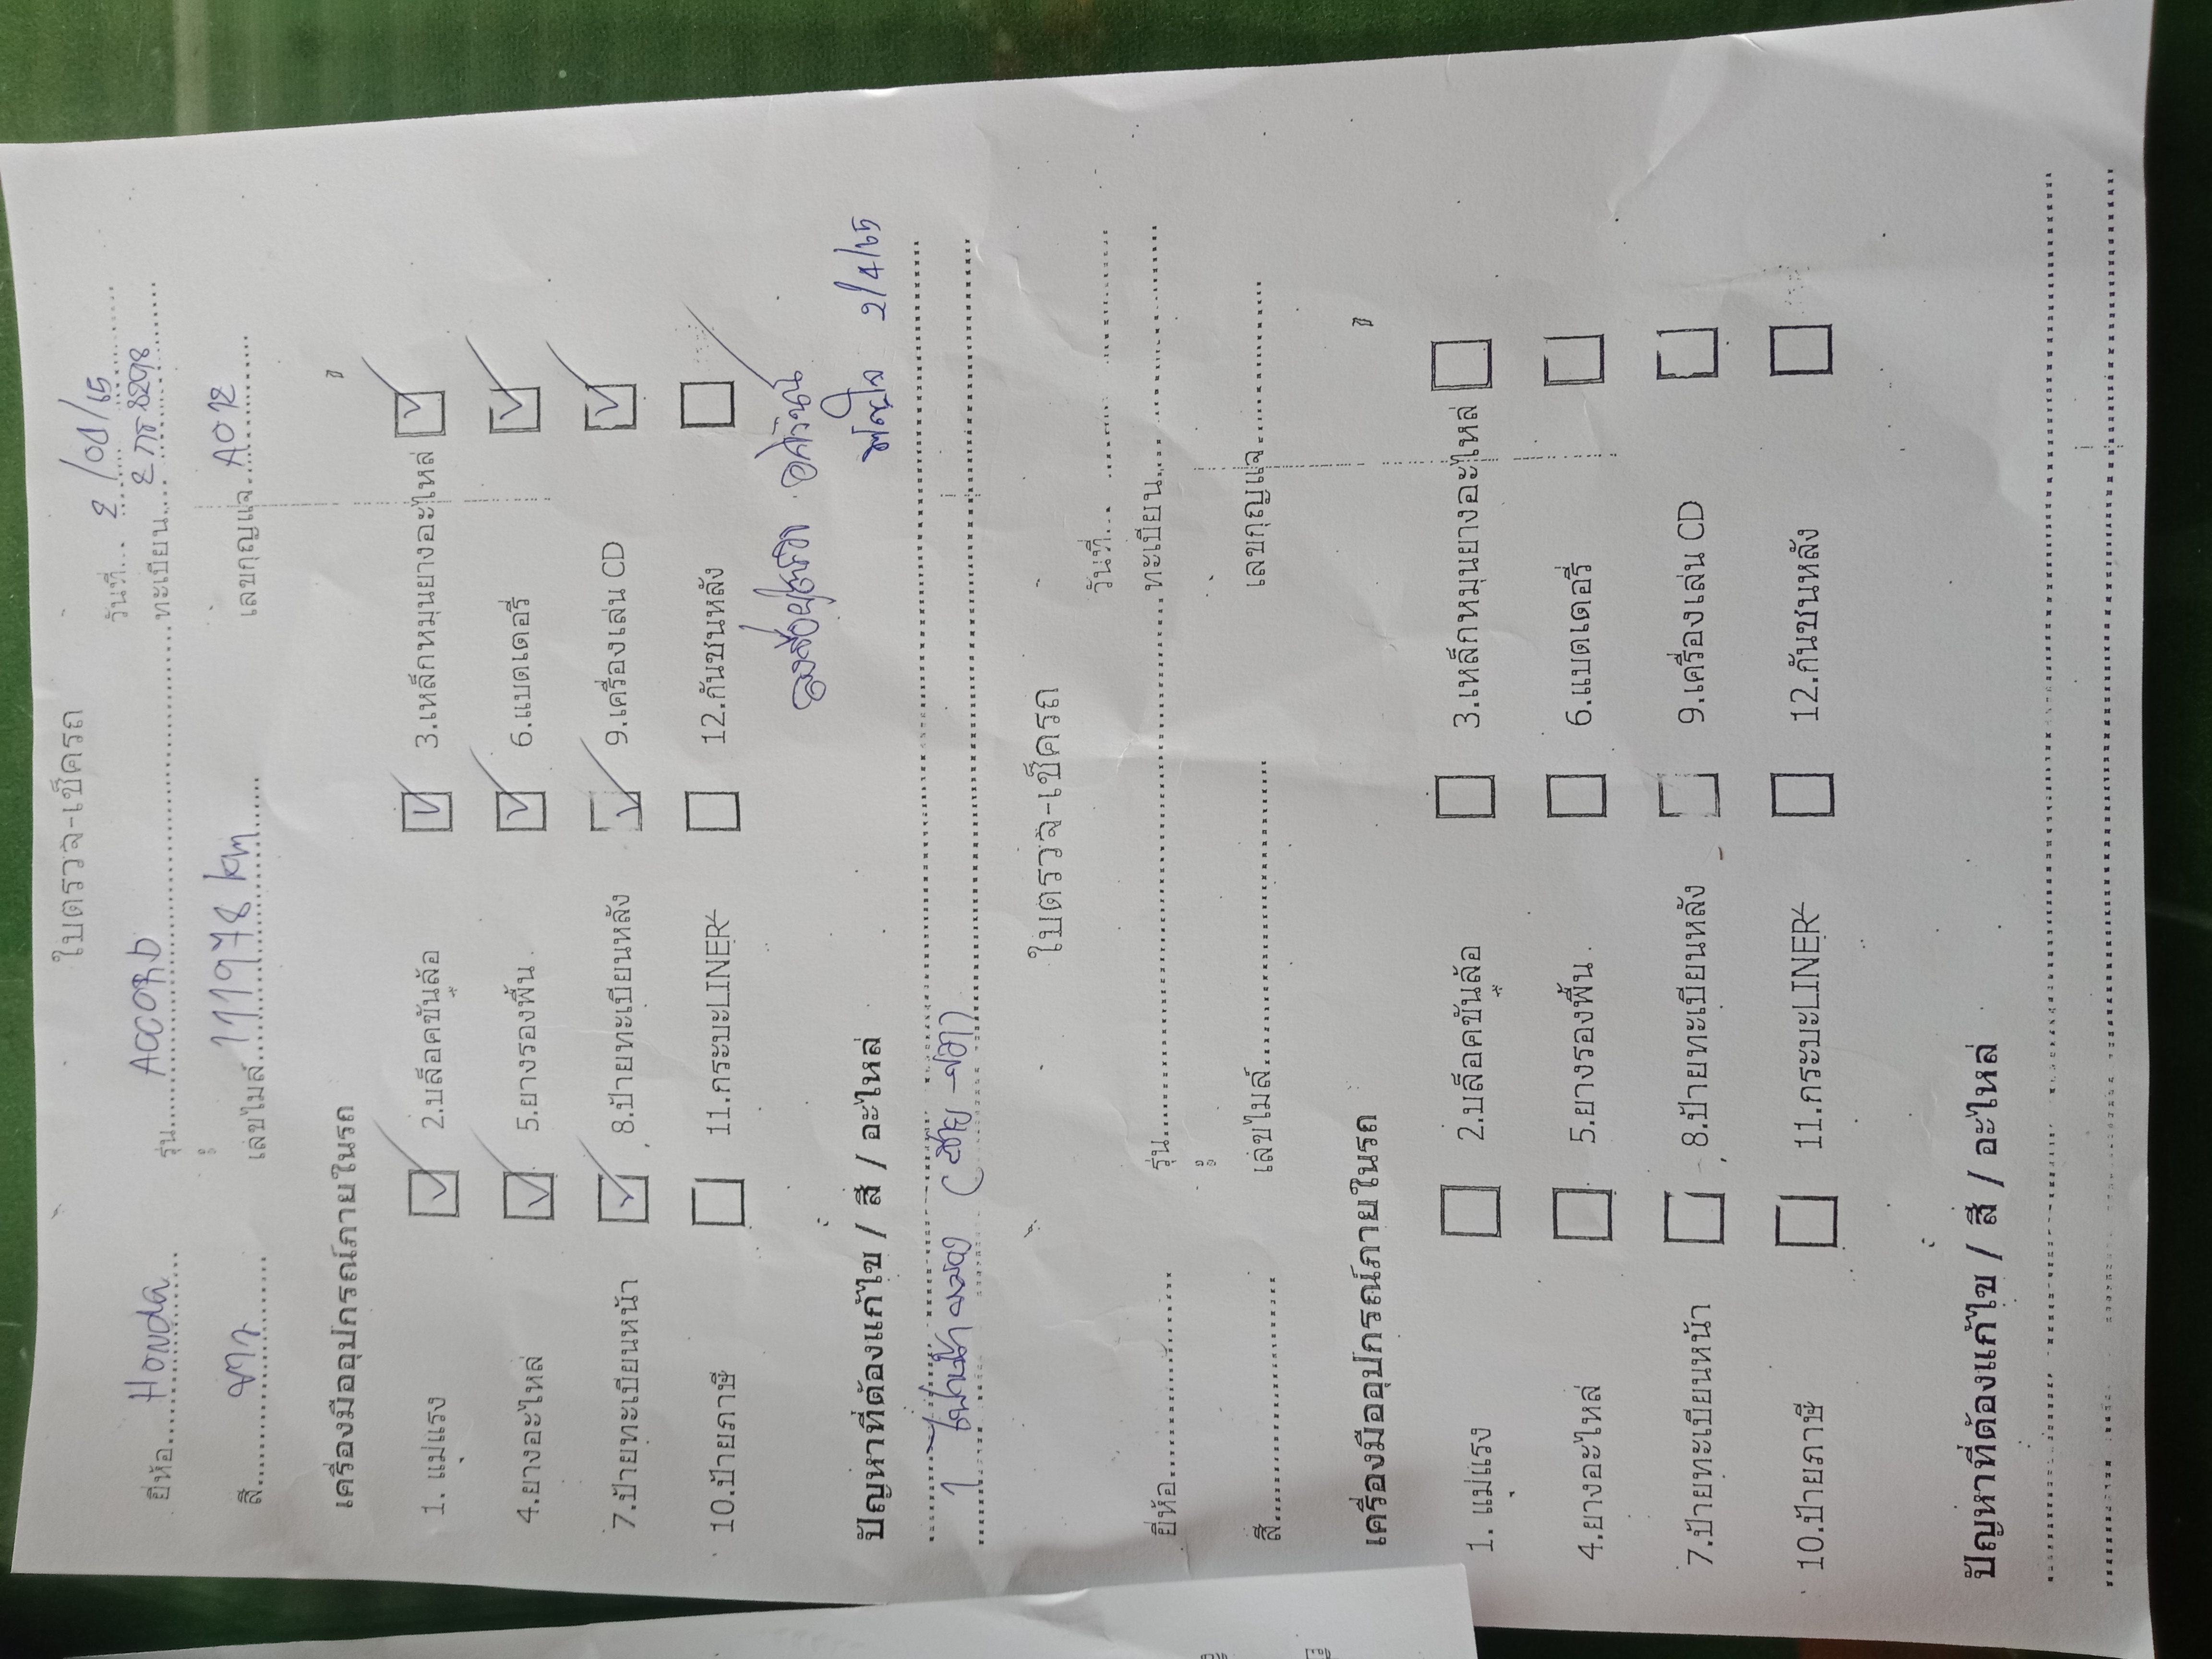 ใบตรวจ-เช็ครถ
วันที่... 2 /04/65
ยี่ห้อ... Honda รุ่น... ACCORD ทะเบียน... 2 กร 8298
สี... ขาว เลขไมล์ 111978 km เลขกุญแจ... A012
เครื่องมืออุปกรณ์ภายในรถ
1. แม่แรง 2.บล็อคขันล้อ 3.เหล็กหมุนยางอะไหล่
4.ยางอะไหล่ 5.ยางรองพื้น 6.แบตเตอรี่
7.ป้ายทะเบียนหน้า 8.ป้ายทะเบียนหลัง 9.เครื่องเล่น CD
10.ป้ายภาษี 11.กระบะLINER 12.กันชนหลัง
2/4/65
ปัญหาที่ต้องแก้ไข / สี / อะไหล่
1 ไฟหน้าหมอง (ซ้าย-ขวา)
ใบตรวจ-เช็ครถ
วันที่...
ยี่ห้อ... รุ่น... ทะเบียน...
สี... เลขไมล์... เลขกุญแจ...
เครื่องมืออุปกรณ์ภายในรถ
1. แม่แรง 2.บล็อคขันล้อ 3.เหล็กหมุนยางอะไหล่
4.ยางอะไหล่ 5.ยางรองพื้น 6.แบตเตอรี่
7.ป้ายทะเบียนหน้า 8.ป้ายทะเบียนหลัง 9.เครื่องเล่น CD
10.ป้ายภาษี 11.กระบะLINER 12.กันชนหลัง
ปัญหาที่ต้องแก้ไข / สี / อะไหล่